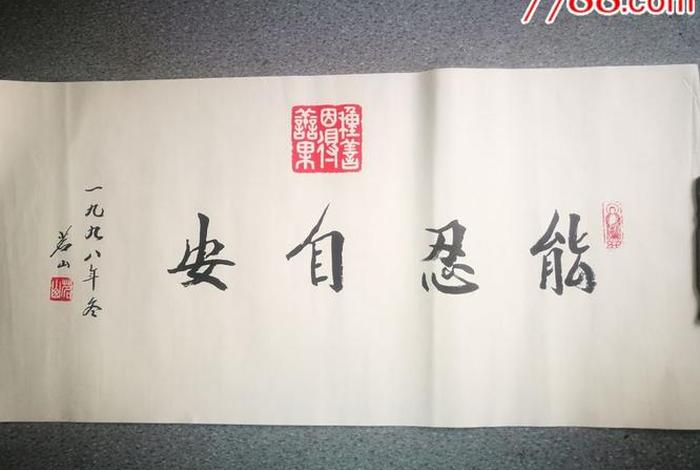 7788.com
種善因得善果
能忍自安
一九九八年冬
茗山
茗山